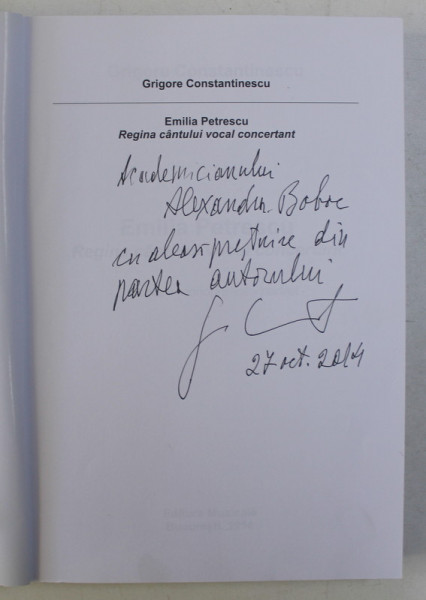 Grigore Constantinescu
Emilia Petrescu
Regina cântului vocal concertant
Academicianului
Alexandru Boboc
cu aleasă prețuire din
partea autorului
27 oct. 2014